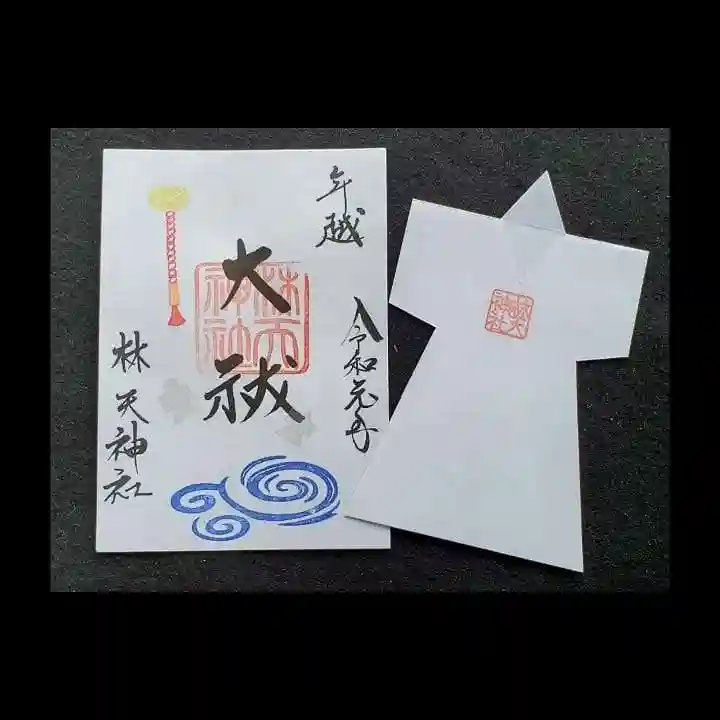 年越
大祓
令和元年
林天神社
林天神社